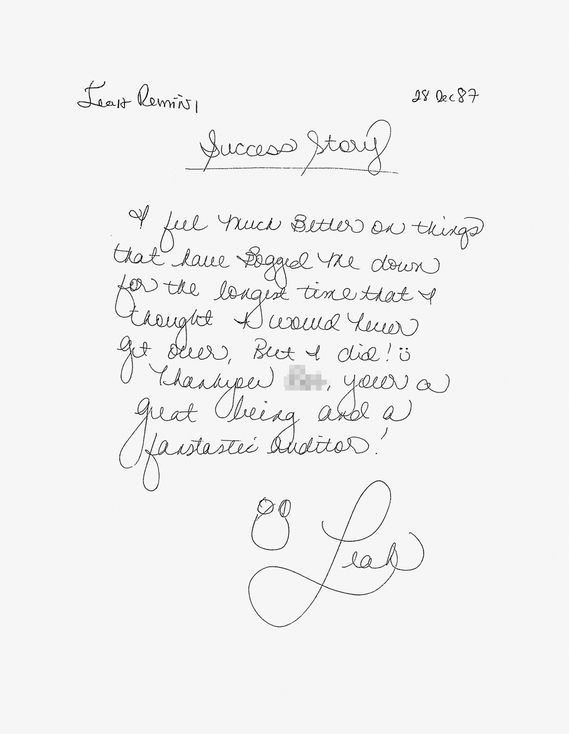 Leah Remini
28 Dec 87
Success Story
I feel much Better on things
that have Bogged me down
for the longest time that I
thought I would never
get over, But I did!
Thankyou , your a
great being and a
fantastic auditor!
Leah